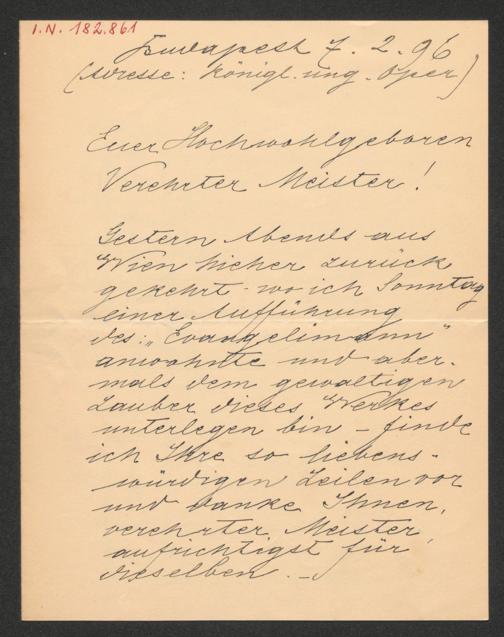 I.N. 182.861
Budapest 7. 2. 96
(Adresse: Königl. ung. Oper)
Euer Hochwohlgeboren
Verehrter Meister!
Gestern Abends aus
Wien hieher zurück
gekehrt - wo ich Sonntag
einer Aufführung
des: „Evangelimann"
anwohnte und aber-
mals dem gewaltigen
Zauber dieses Werkes
unterlegen bin - finde
ich Ihre so liebens-
würdigen Zeilen vor
und danke Ihnen,
verehrter Meister,
aufrichtigst für
dieselben. -